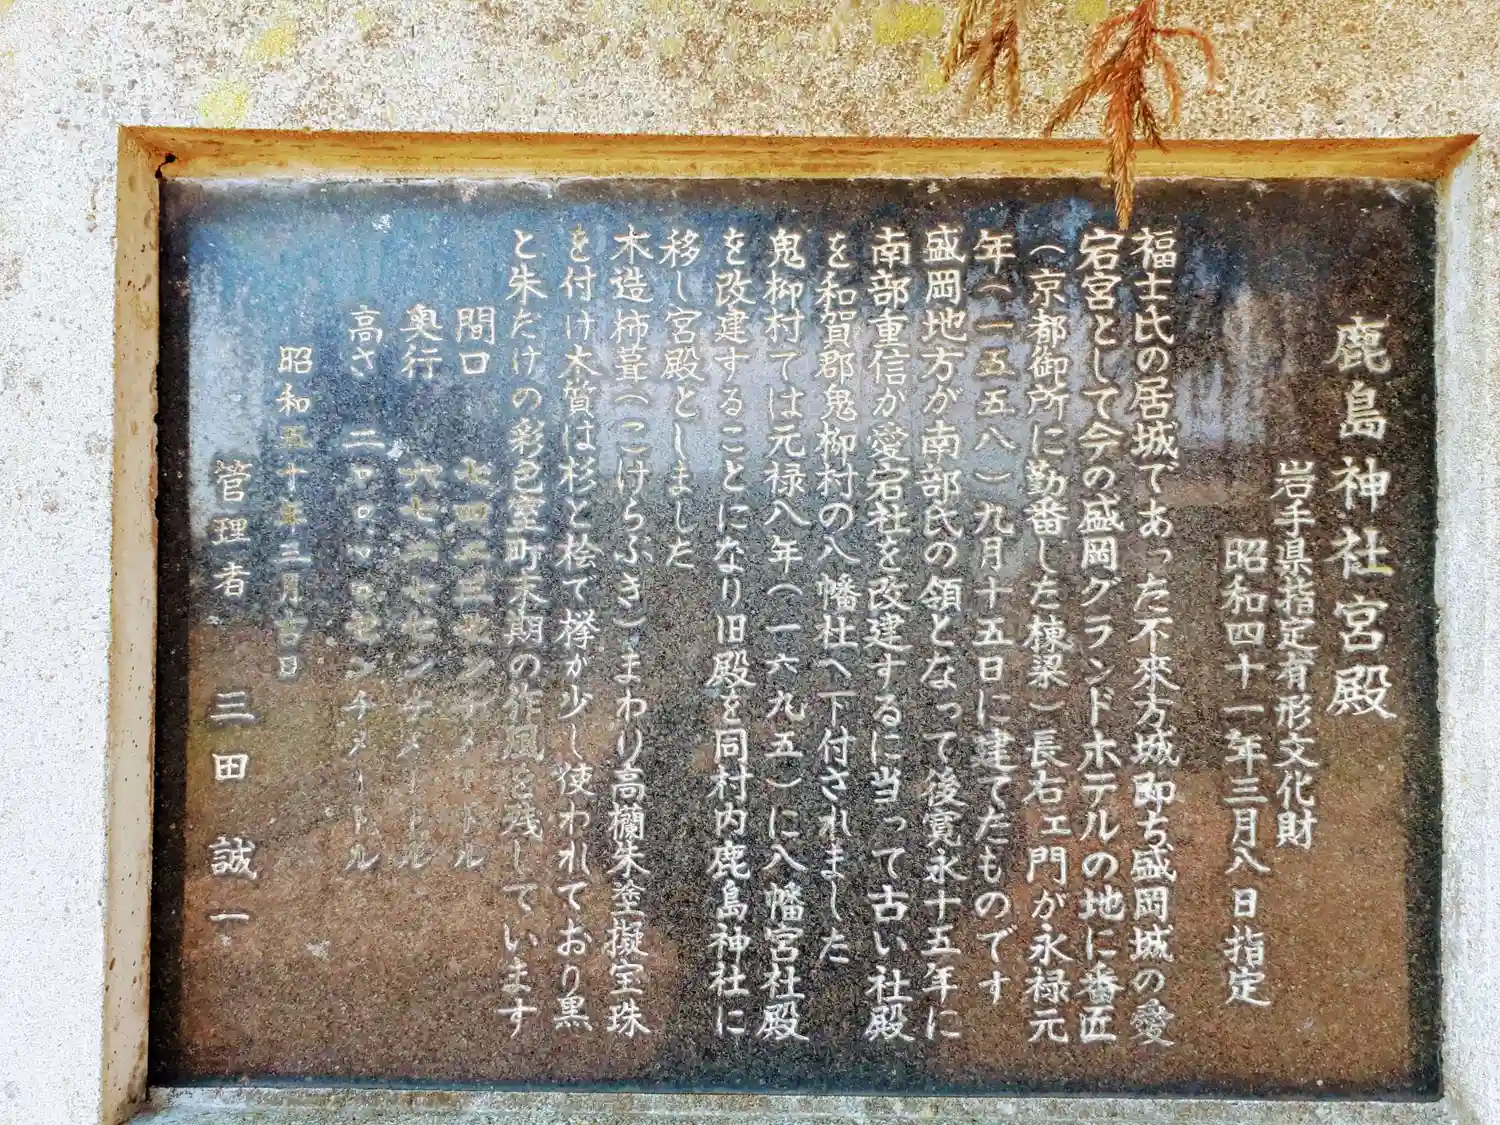 鹿島神社宮殿
岩手県指定有形文化財
昭和四十一年三月八日指定
福士氏の居城であった不來方城即ち盛岡城の愛
宕宮として今の盛岡グランドホテルの地に番匠
（京都御所に勤番した棟梁）長右ェ門が永禄元
年（一五五八）九月十五日に建てたものです
盛岡地方が南部氏の領となって後寛永十五年に
南部重信が愛宕社を改建するに当って古い社殿
を和賀郡鬼柳村の八幡社へ下付されました
鬼柳村ては元禄八年（一六九五）に八幡宮社殿
を改建することになり旧殿を同村内鹿島神社に
移し宮殿としました
木造柿葺（こけらふき）まわり高欄朱塗擬宝珠
を付け木質は杉と桧て欅が少し使われており黒
と朱たけの彩色室町末期の作風を残しています
間口 七四・三センチメートル
奥行 六七・六センチメートル
高さ 二〇〇・〇センチメートル
昭和五十年三月吉日
管理者 三田誠一